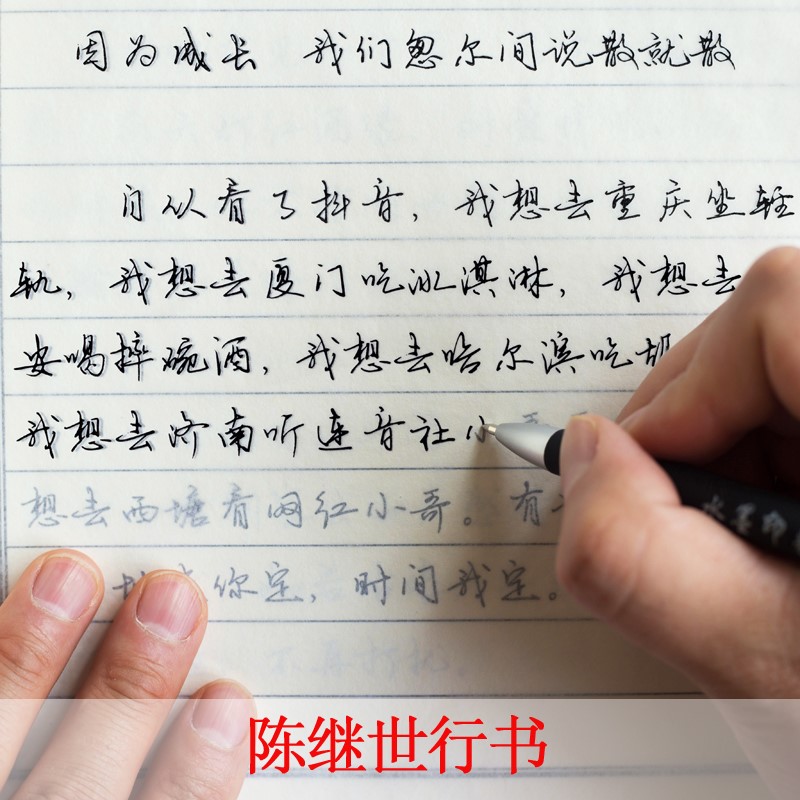 因为成长 我们忽尔间说散就散
自从看了抖音，我想去重庆坐轻
轨，我想去厦门吃冰淇淋，我想去
安喝摔碗酒，我想去哈尔滨吃
我想去济南听连音社小
想去西塘看网红小哥。有
你定，时间我定。
不再打扰，
水墨印
陈继世行书